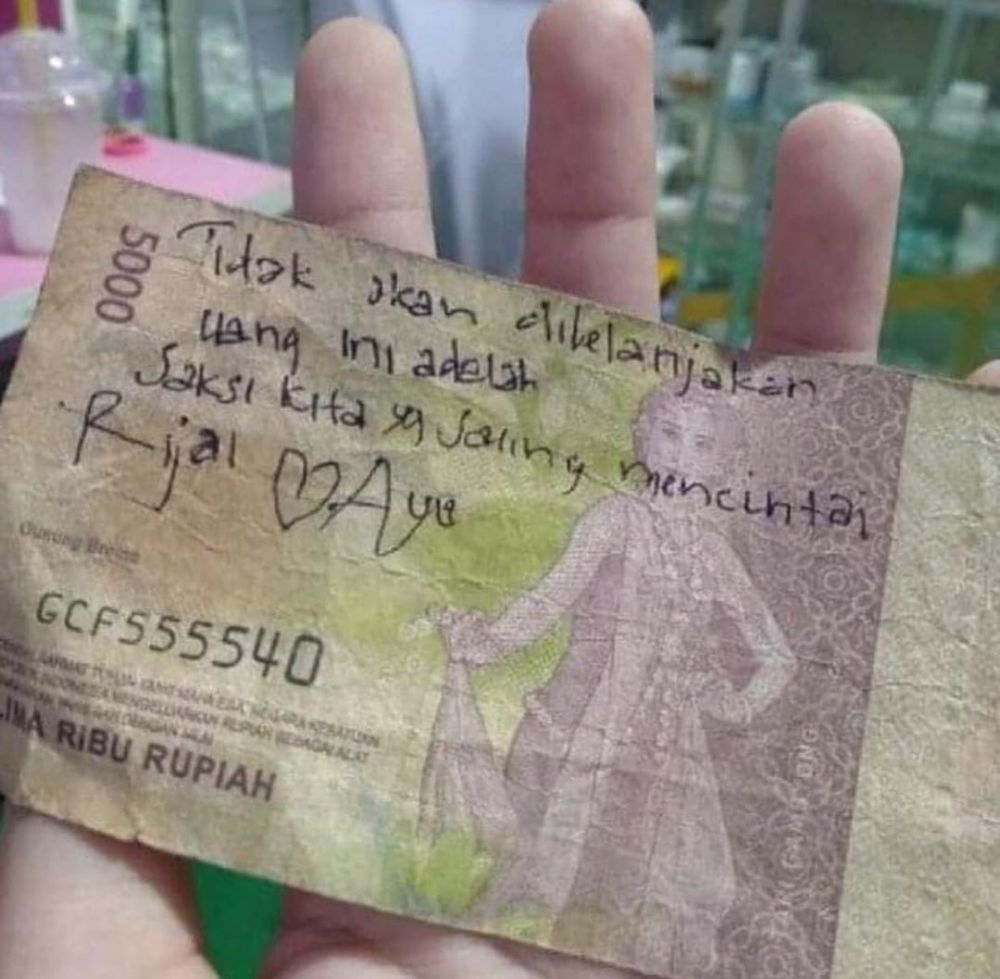 5000
Tidak akan dibelanjakan
uang ini adelah
Saksi kita yg Saling mencintai
Rijal ♡ Ayu
Gunung Bromo
GCF555540
LIMA RIBU RUPIAH